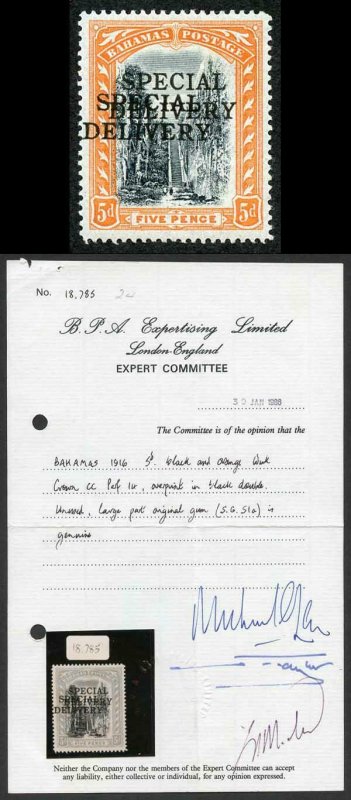 BAHAMAS POSTAGE
SPECIAL
SPECIAL
DELIVERY
DELIVERY
5d 5d
FIVE PENCE
No. 18,785 2a
B.P.A. Expertising Limited
London-England
EXPERT COMMITTEE
30 JAN 1986
The Committee is of the opinion that the
BAHAMAS 1916 5d. black and orange Wmk
Crown CC Perf 14, overprint in black double.
Unused, large part original gum (S.G. S1a) is
genuine
18,785
SPECIAL
SPECIAL
DELIVERY
DELIVERY
FIVE PENCE
Neither the Company nor the members of the Expert Committee can accept
any liability, either collective or individual, for any opinion expressed.